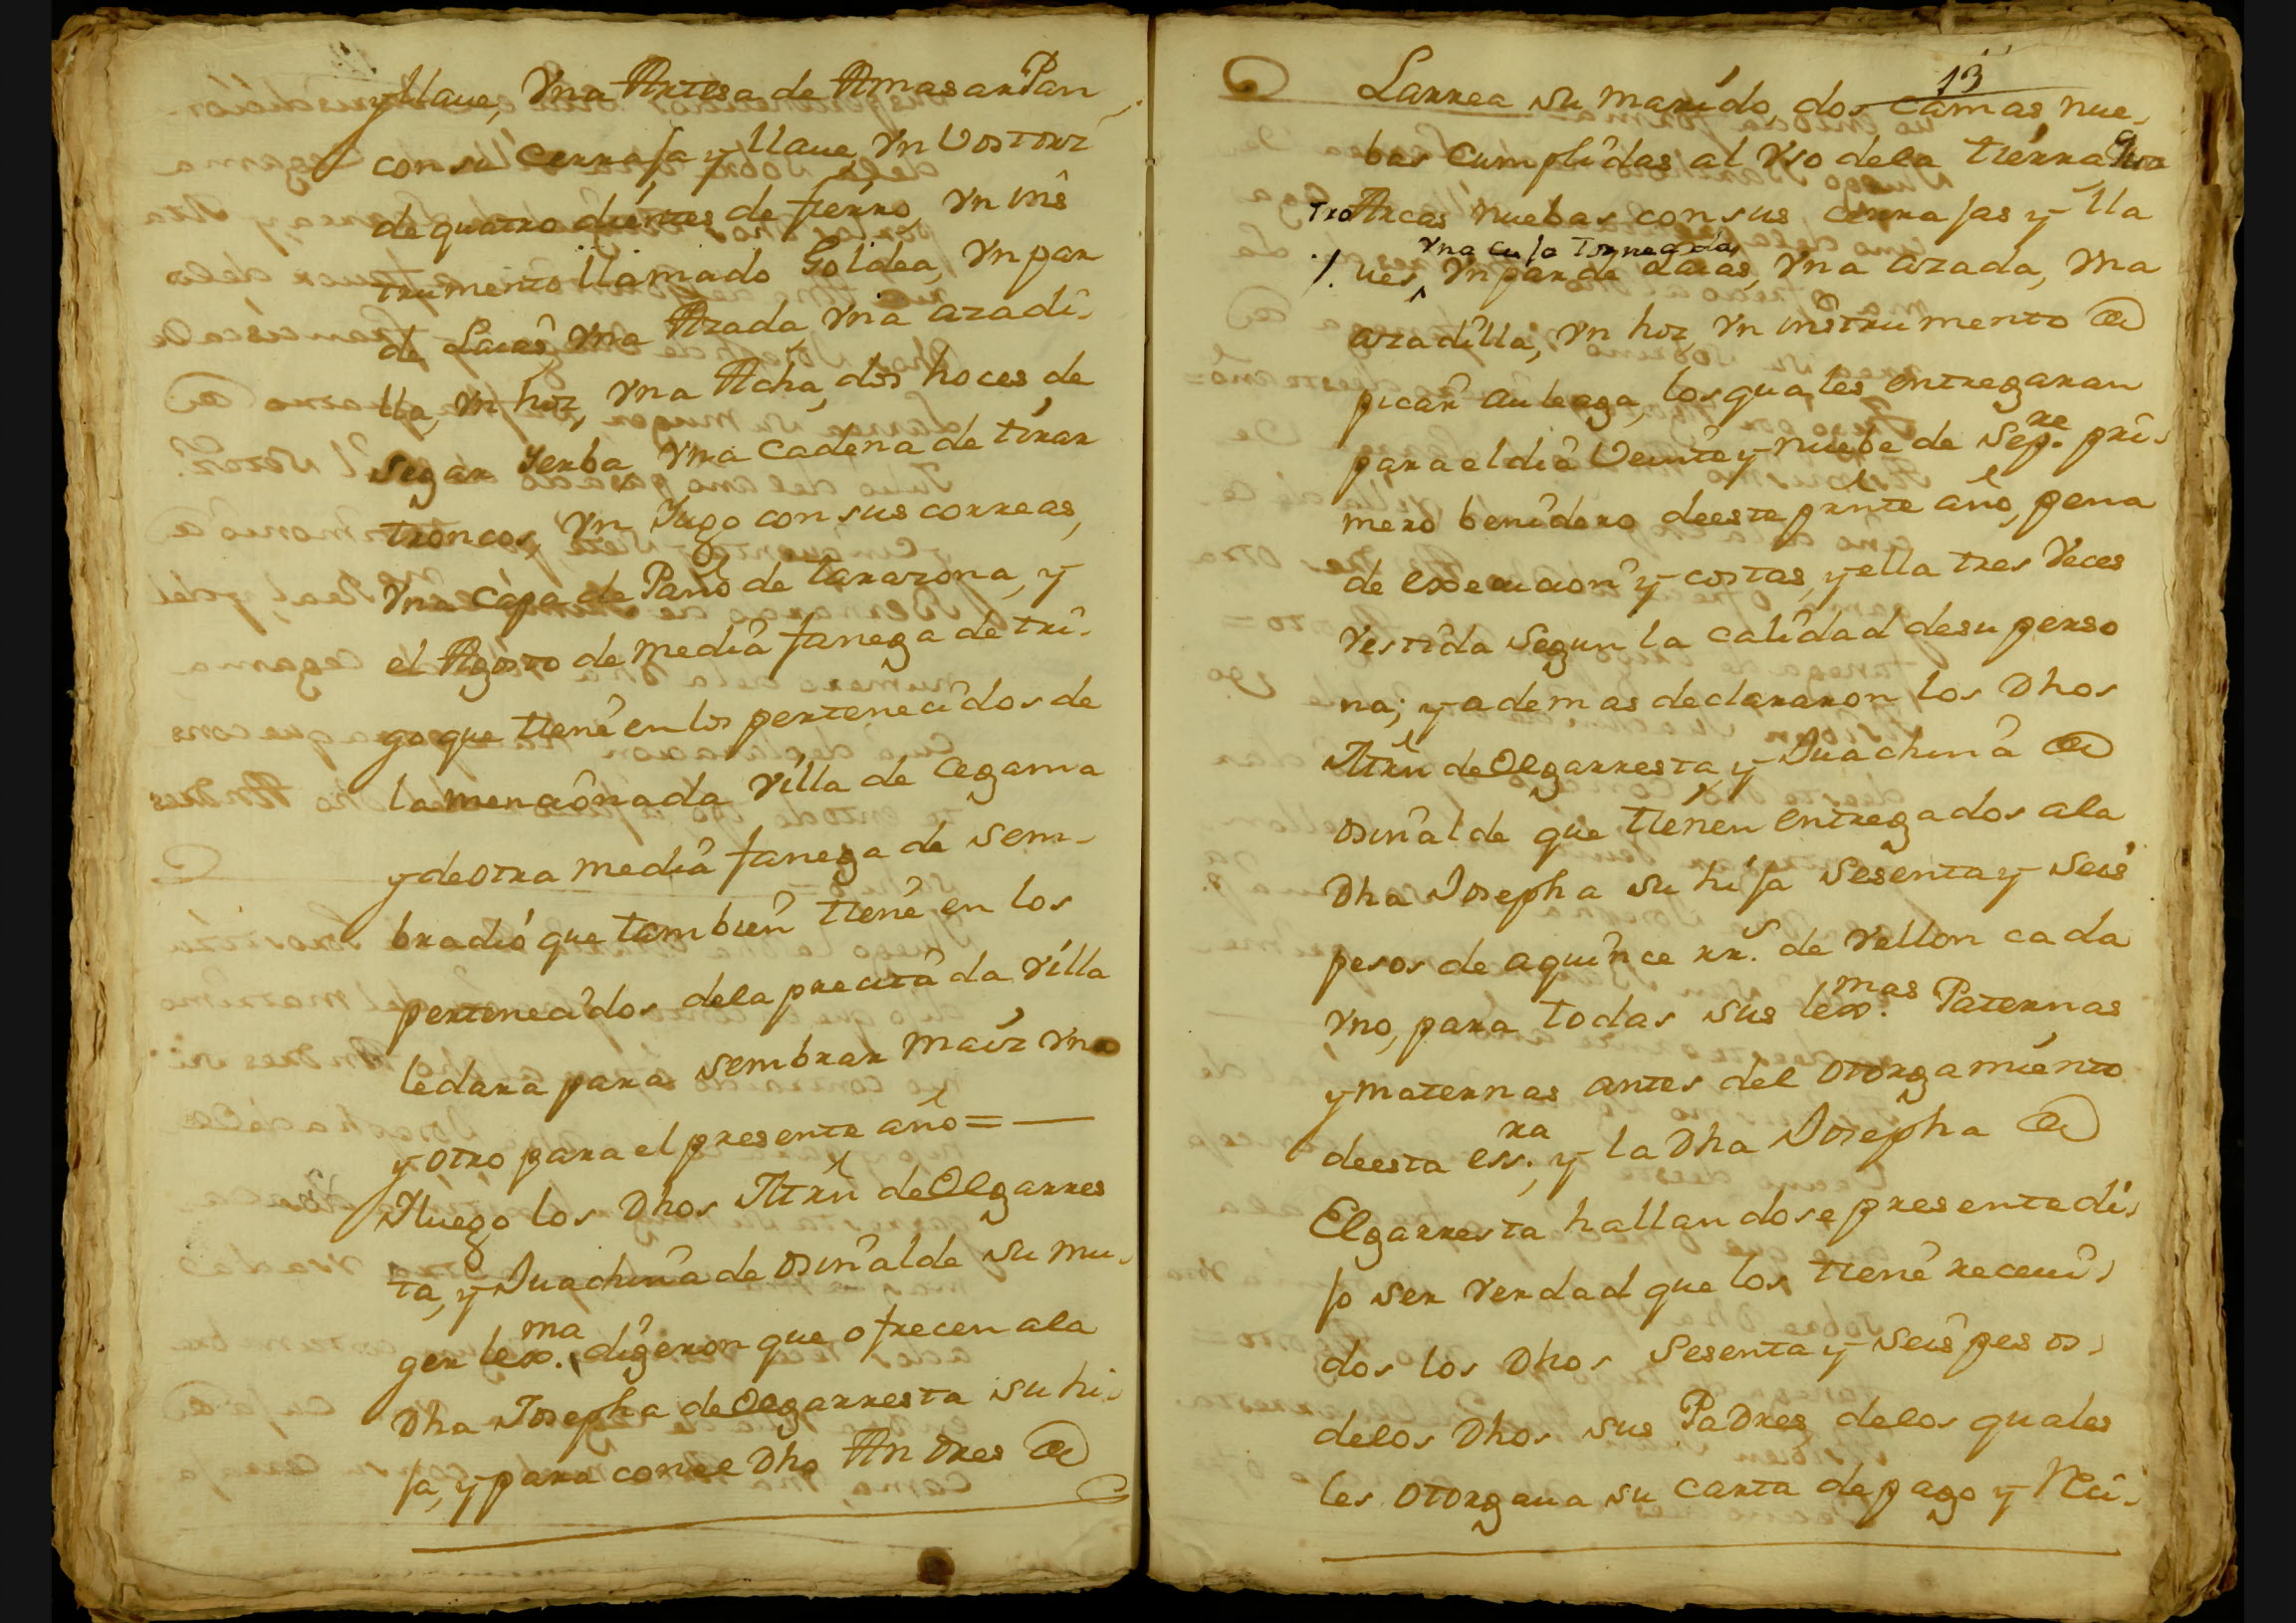 y llaue, Vna Artesa de Amasar Pan
con su cerraja y llaue, Vn Vostorz
de quatro dientes de fierro, Vn ins
trumento llamado Goldea, Vn par
de Laias, Vna Azada, Vna azadi-
lla, Vn hoz, Vna Acha, dos hoces de
segar Yerba, Vna Cadena de tirar
troncos, Vn Jugo con sus correas,
Vna capa de Paño de tarazona, y
el Agosto de media fanega de tri-
go que tiene en los pertenecidos de
la mencionada Villa de Cegama
y de otra media fanega de sem-
bradio que tambien tiene en los
pertenecidos dela precitada Villa
ledara para sembrar maiz Vno
y otro para el presente año = —
Yluego los Dhos Mrn de Olgarres
ta, y Juachina de osinalde su mu-
ger lex.ma, digeron que ofrecen ala
Dha Josepha de Olgarresta su hi-
ja, y para con el Dho Andres @
13
Larrea su marido, dos camas nue-
bas cumplidas al Vso dela tierra, qua
tro Arcas nuebas con sus cerrajas y lla
Vna cuja Torneada
ues, Vn par de Laias, Vna azada, Vna
azadilla, Vn hoz, Vn instrumento @
picar auleaga, los quales entregaran
para el dia Veinte y nuebe de Sep.re pri-
mero benidero deeste prnte año, pena
de execucion y costas, y ella tres Veces
Vestida segun la calidad desu perso
na; y ademas declararon los Dhos
Mrn de Olgarresta y Juachina @
osinalde que tienen entregados ala
Dha Josepha su hija Sesenta y Seis
pesos de aquince rr.s de Vellon cada
Vno, para todas sus lex.mas Paternas
y maternas antes del otorgamiento
deesta ess.ra, y la Dha Josepha @
Elgarresta hallandose presente di-
jo ser Verdad que los tiene receui-
dos los Dhos Sesenta y Seis pesos
delos Dhos sus Padres delos quales
les otorgaua su carta de pago y Reci-